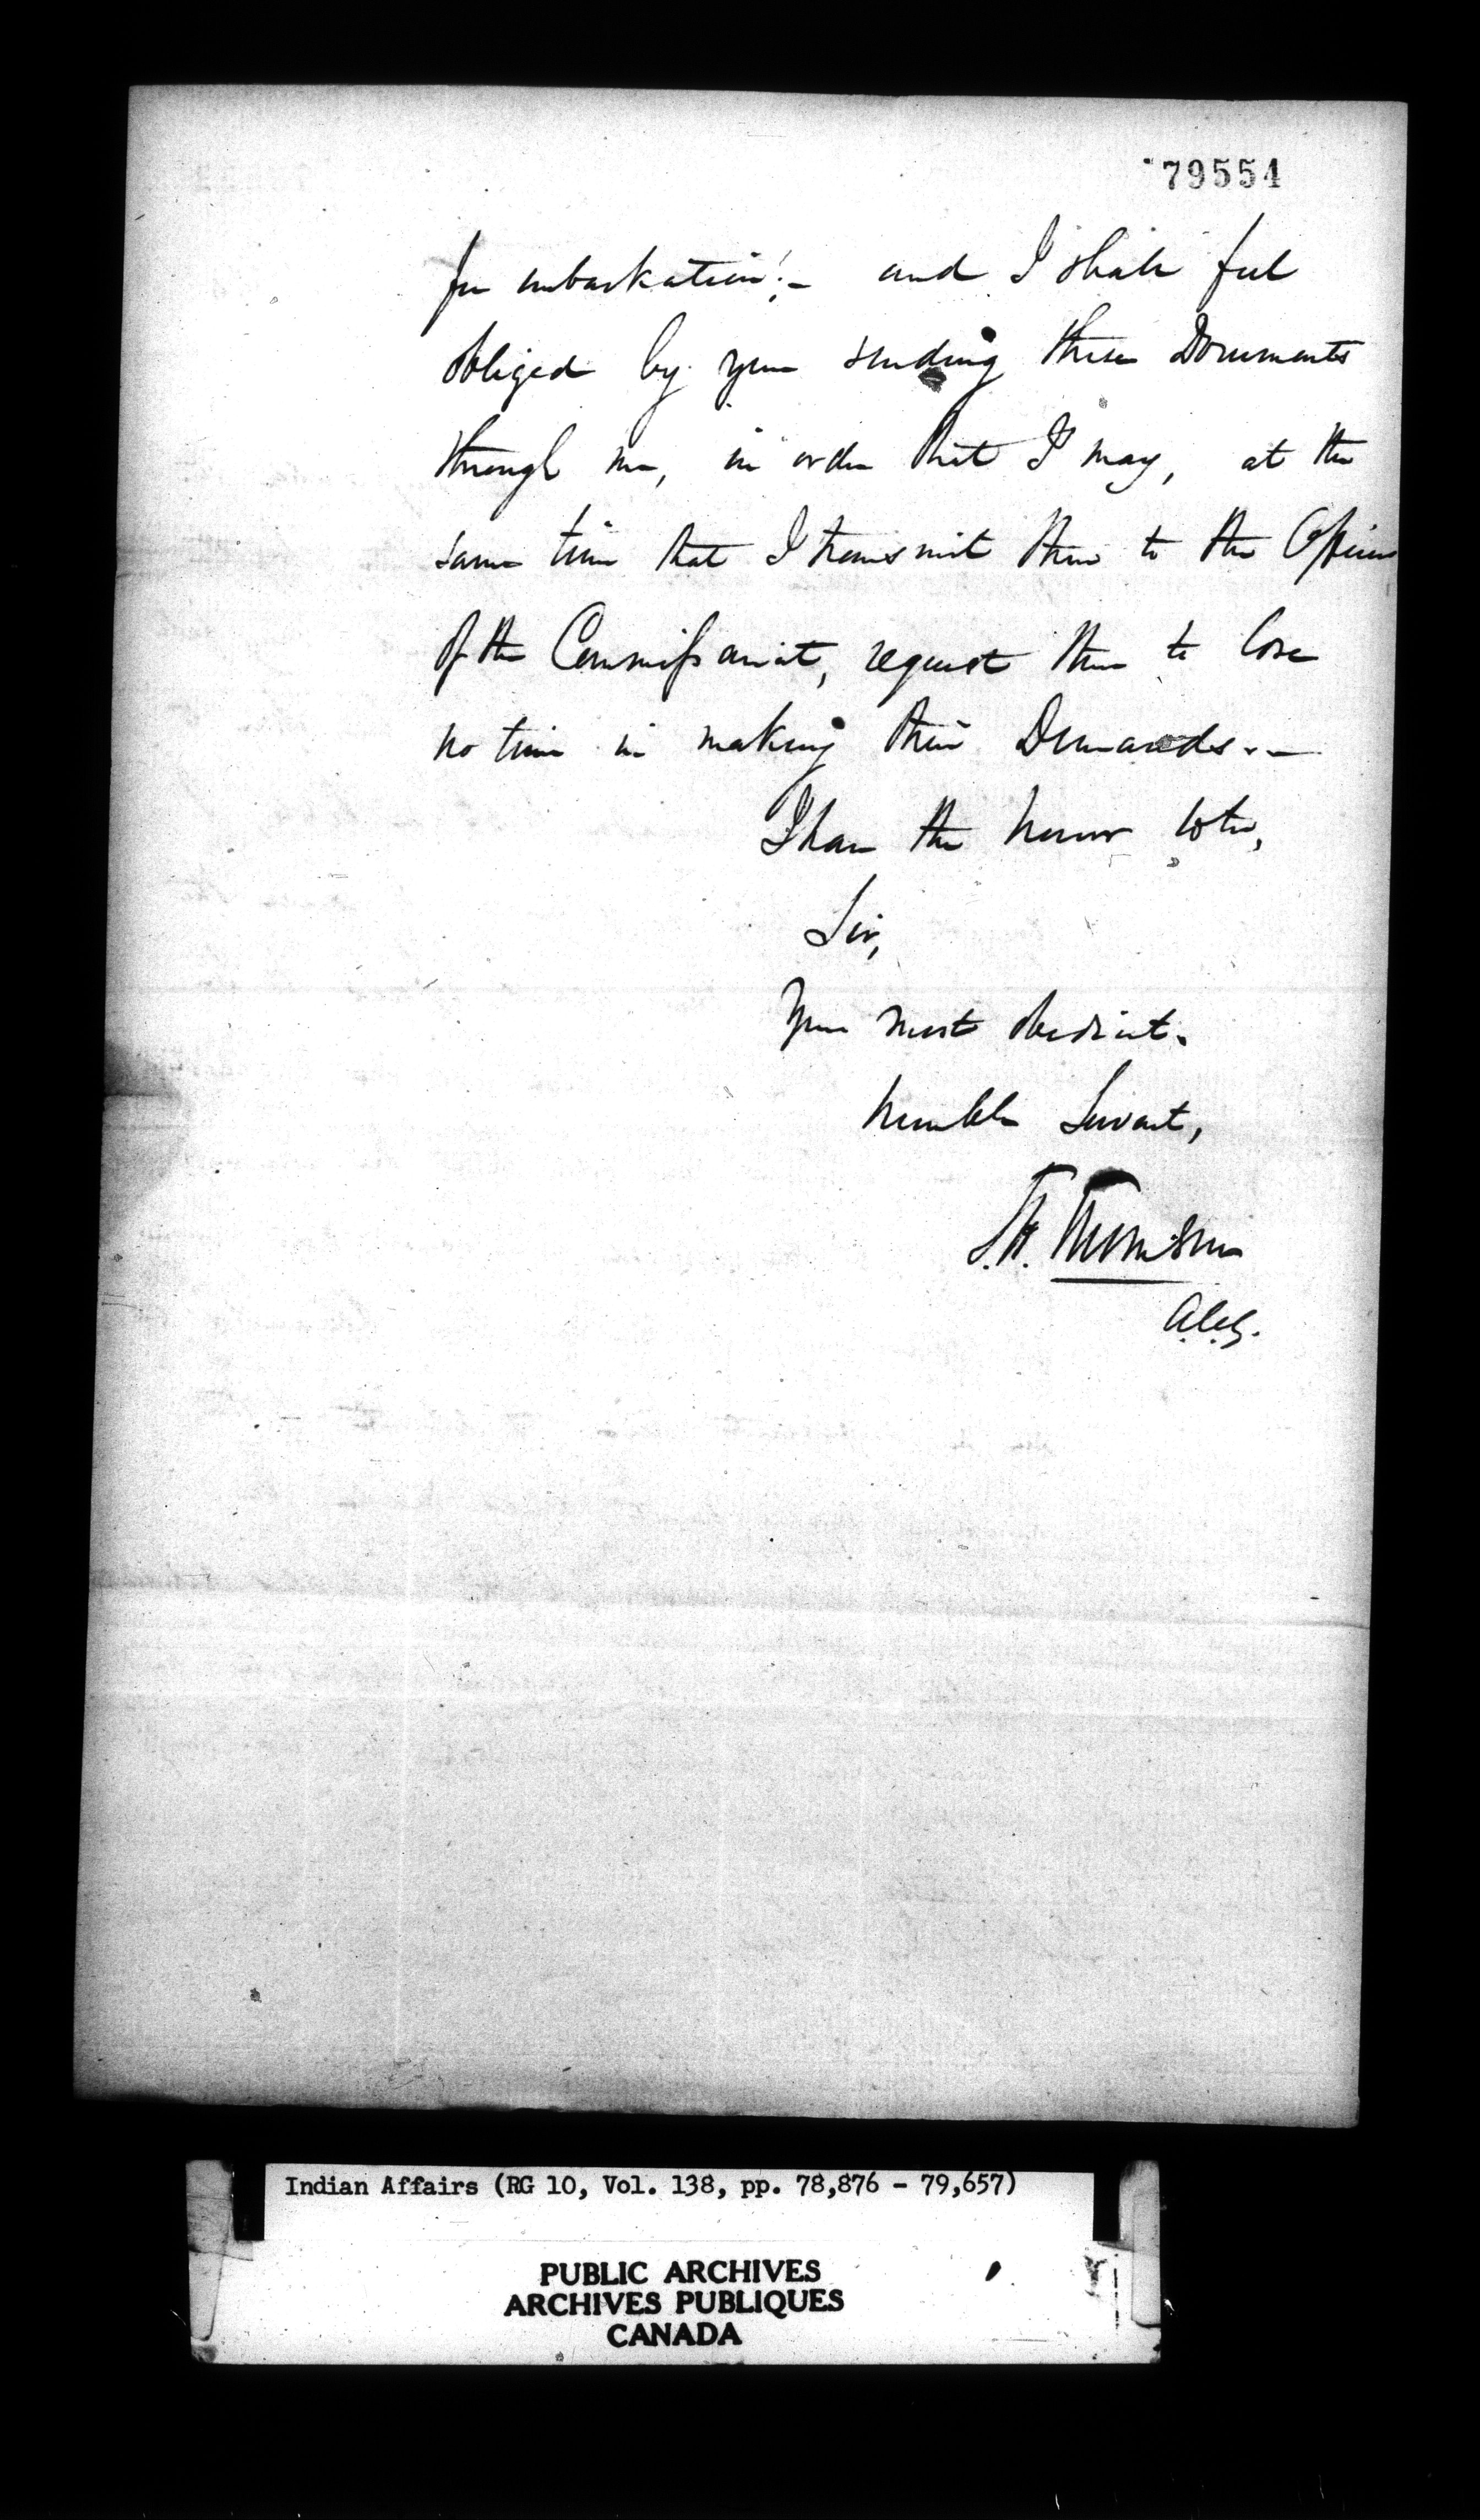 79554
for embarkation;— and I shall feel
obliged by your sending these Documents
through me, in order that I may, at the
same time that I transmit them to the Officers
of the Commissariat, request them to lose
no time in making their Demands.—
I have the honor to be,
Sir,
Your most obedient.
humble Servant,
Thomson
A.C.G.
Indian Affairs (RG 10, Vol. 138, pp. 78,876 - 79,657)
PUBLIC ARCHIVES
ARCHIVES PUBLIQUES
CANADA